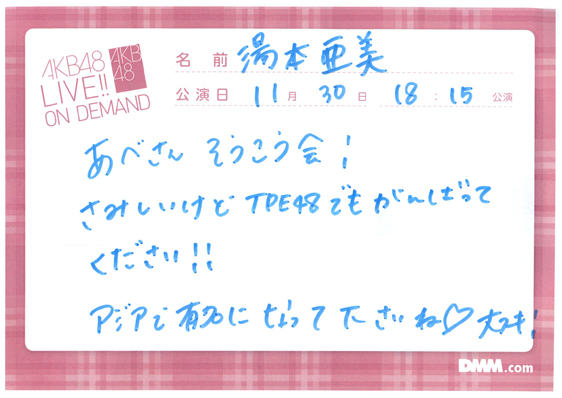 AKB48
LIVE!!
ON DEMAND
AKB
48
名前 湯本亜美
公演日 11月 30日 18:15 公演
あべさん そうこう会!
さみしいけど TPE48でもがんばって
ください!!
アジアで有名になって下さいね♡大スキ!
DMM.com